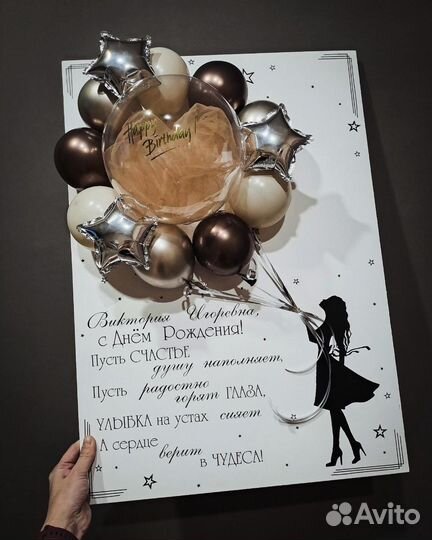 Happy
Birthday!
Виктория Игоревна,
с Днём Рождения!
Пусть СЧАСТЬЕ
душу наполняет,
Пусть радостно
горят ГЛАЗА,
УЛЫБКА на устах сияет
А сердце
верит
в ЧУДЕСА!
Avito